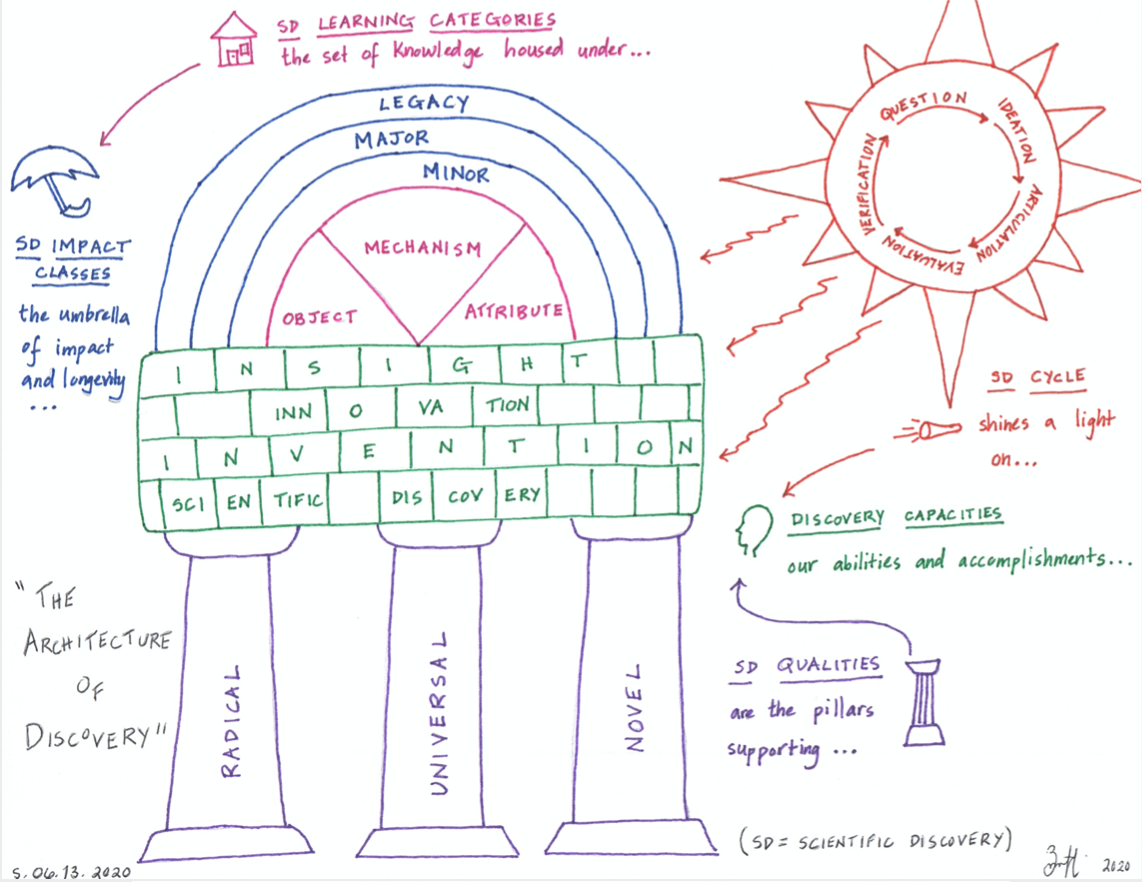 SD LEARNING CATEGORIES
the set of Knowledge housed under...
LEGACY
MAJOR
MINOR
MECHANISM
OBJECT
ATTRIBUTE
SD IMPACT
CLASSES
the umbrella
of impact
and longevity
...
QUESTION
IDEATION
ARTICULATION
EVALUATION
VERIFICATION
I N S I G H T
INN O VA TION
I N V E N T I O N
SCI EN TIFIC DIS COV ERY
SD CYCLE
shines a light
on...
DISCOVERY CAPACITIES
our abilities and accomplishments...
"THE
ARCHITECTURE
OF
DISCOVERY"
RADICAL
UNIVERSAL
NOVEL
SD QUALITIES
are the pillars
supporting ...
(SD = SCIENTIFIC DISCOVERY)
S. 06.13.2020
2020